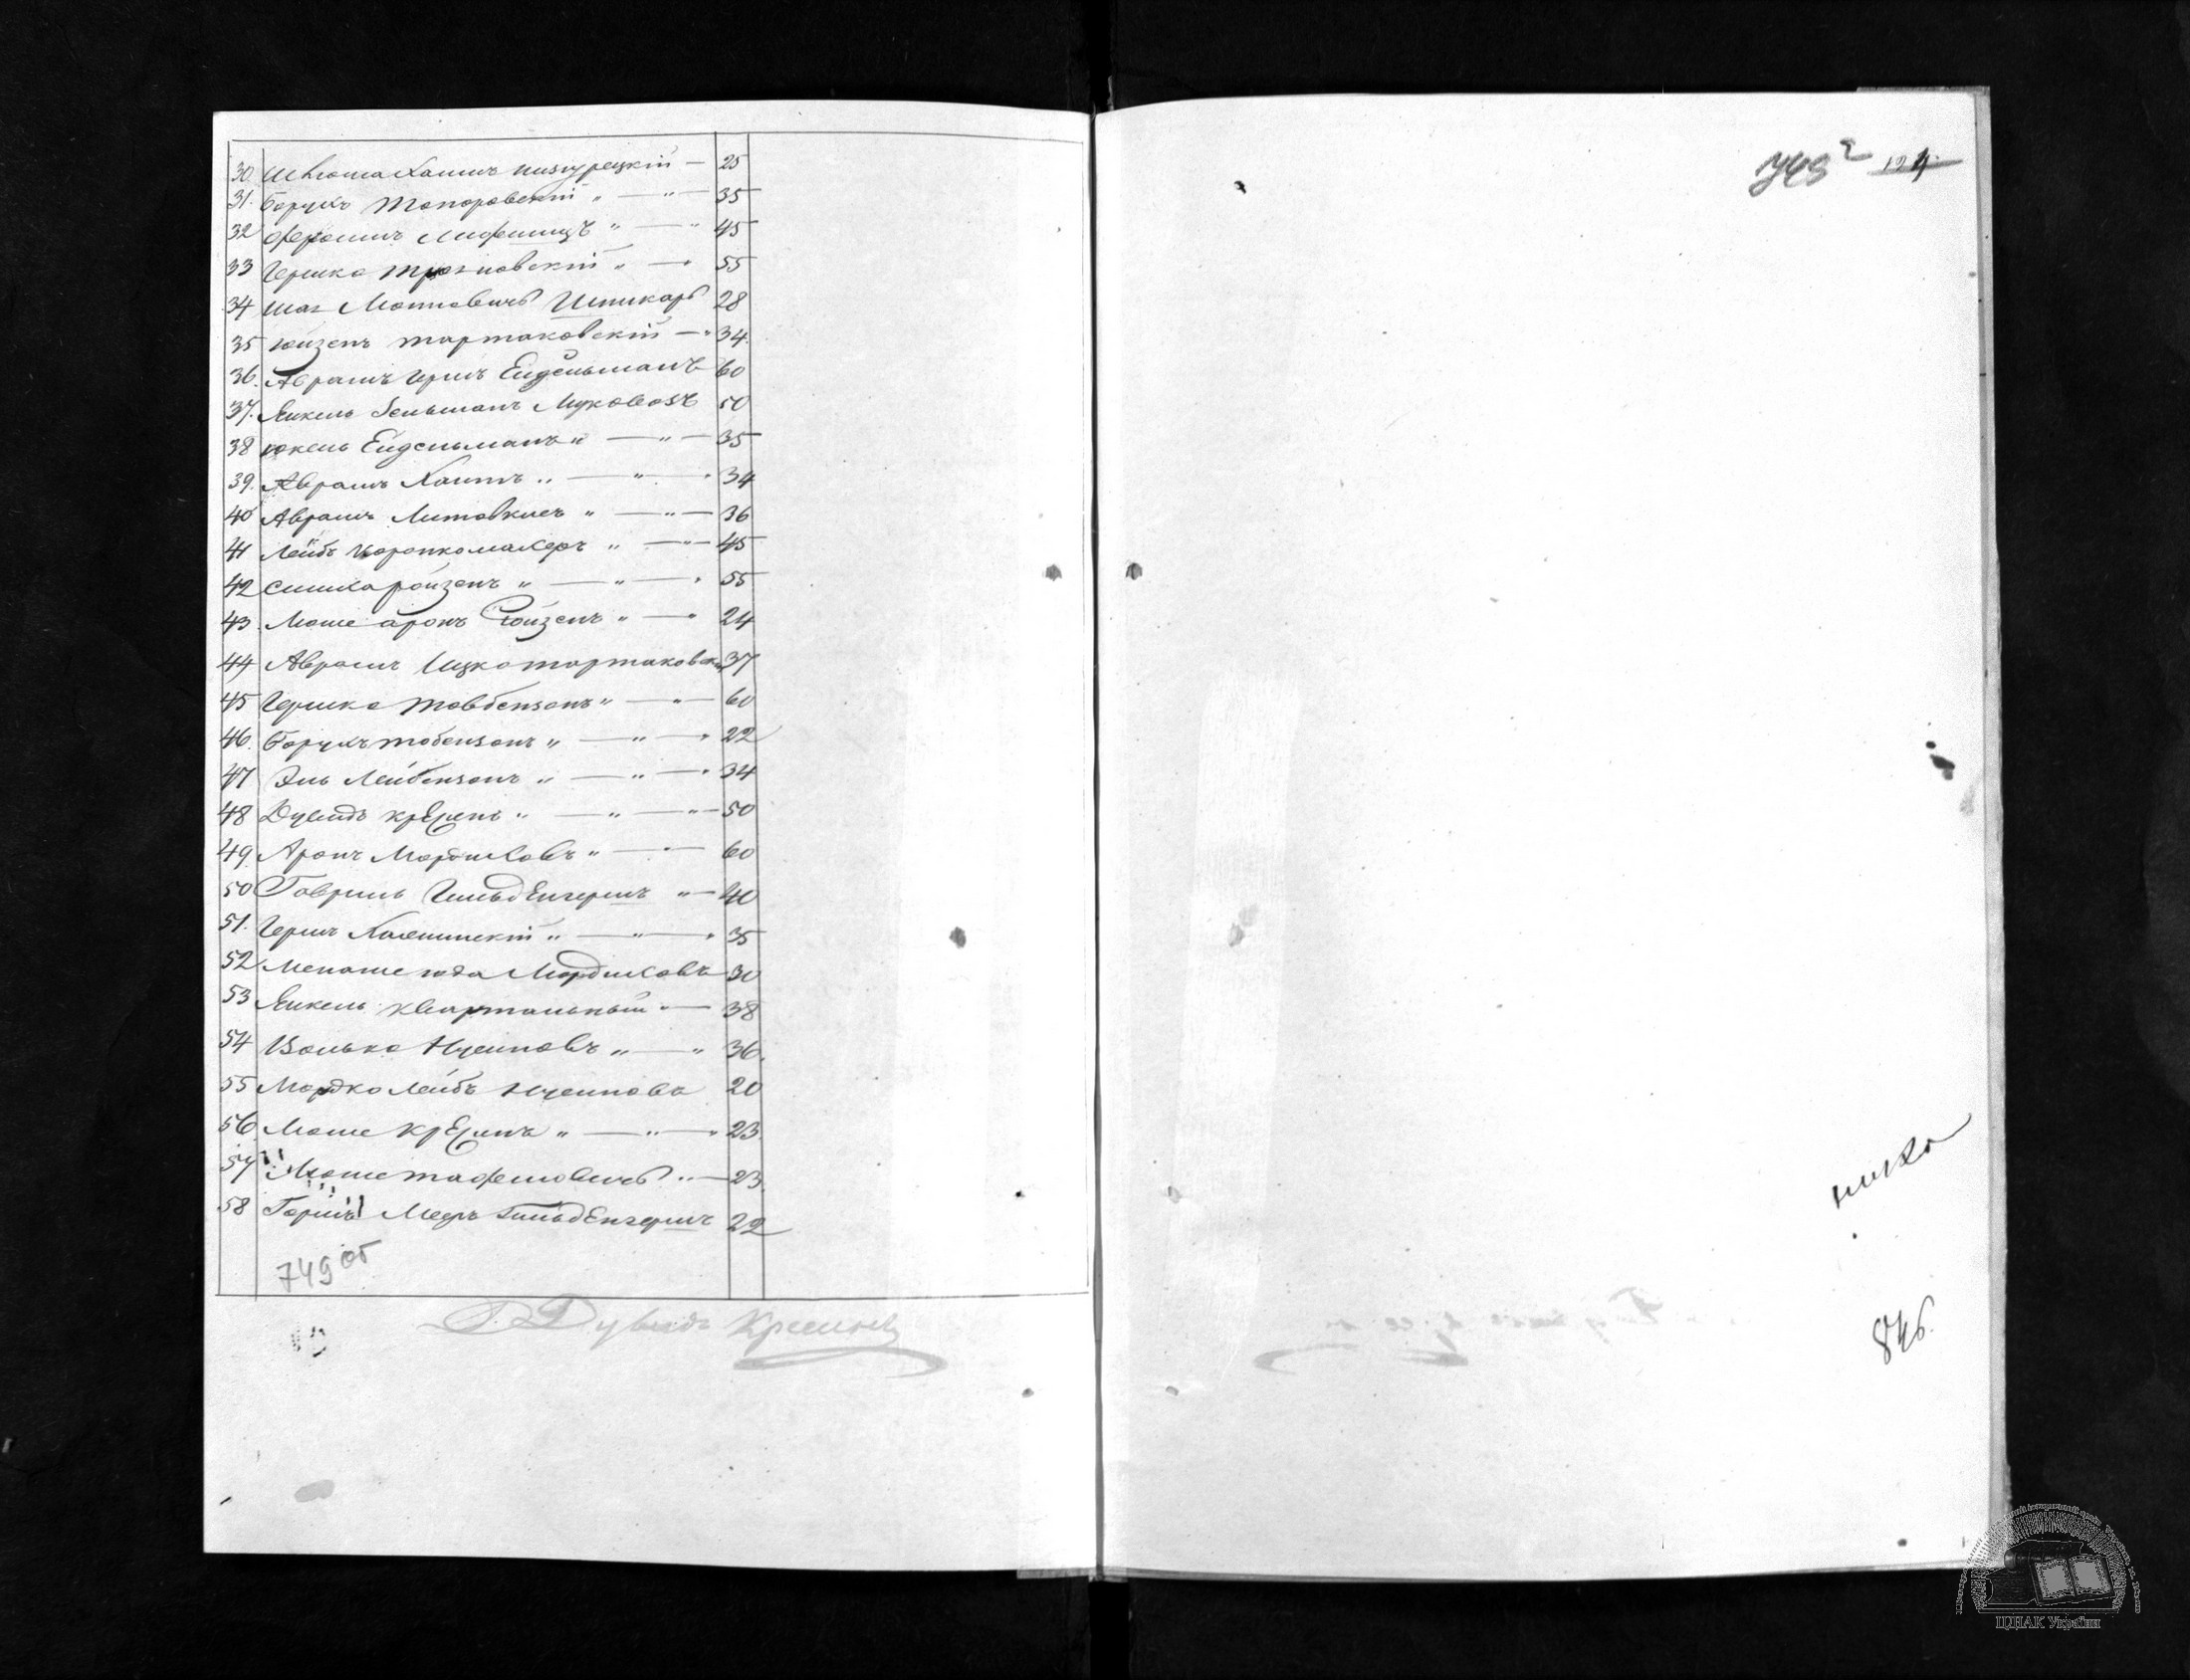 30. Хаимъ — 25
31. Борухъ Топоровскій „ — „ — 35
32 Ефроимъ Лифшицъ „ — „ 45
33 Гершко „ — „ 55
34 Мошковичъ Шпикарь 28
35 Ройзенъ тартаковскій — „ 34.
36. Аврамъ Гершъ Ейдельманъ 60
37. Янкель Зельманъ Муковозъ 50
38 Юкель Ейдельманъ „ — „ — 35
39. Аврамъ Хаитъ „ — „ „ 34
40 Аврамъ Литовкисъ „ — „ — 36
41 Лейбъ коропкомахеръ „ — „ — 45
42 симха ройзенъ „ — „ — „ 55
43. Моше аронъ Ройзенъ „ — „ 24
44 Аврамъ Ицко тартаковскій 37
45 Гершко товбензонъ „ — „ — 60
46. Борухъ тобензонъ „ — „ — „ 22
47 Эль Лейбензонъ „ — „ — „ 34
48 Дувидъ „ — „ — „ — 50
49. Аронъ Мордиховъ „ — „ — 60
50 Гаврилъ ГильдЕнгершъ „ — 40
51. Гершъ Каменискій „ — „ — „ 35
52 Менаше юда Мордиховъ 30
53 Янкель квартальный „ — 38
54 Волько Нусиновъ „ — „ 36.
55 Мордко Лейбъ Нусиновъ 20
56. Моше „ — „ — „ 23.
57 Моше „ — 23.
58 Гершъ Мееръ ГильдЕнгершъ 22
749 об
Дувидъ
749 2
124.
846.
ЦДІАК України